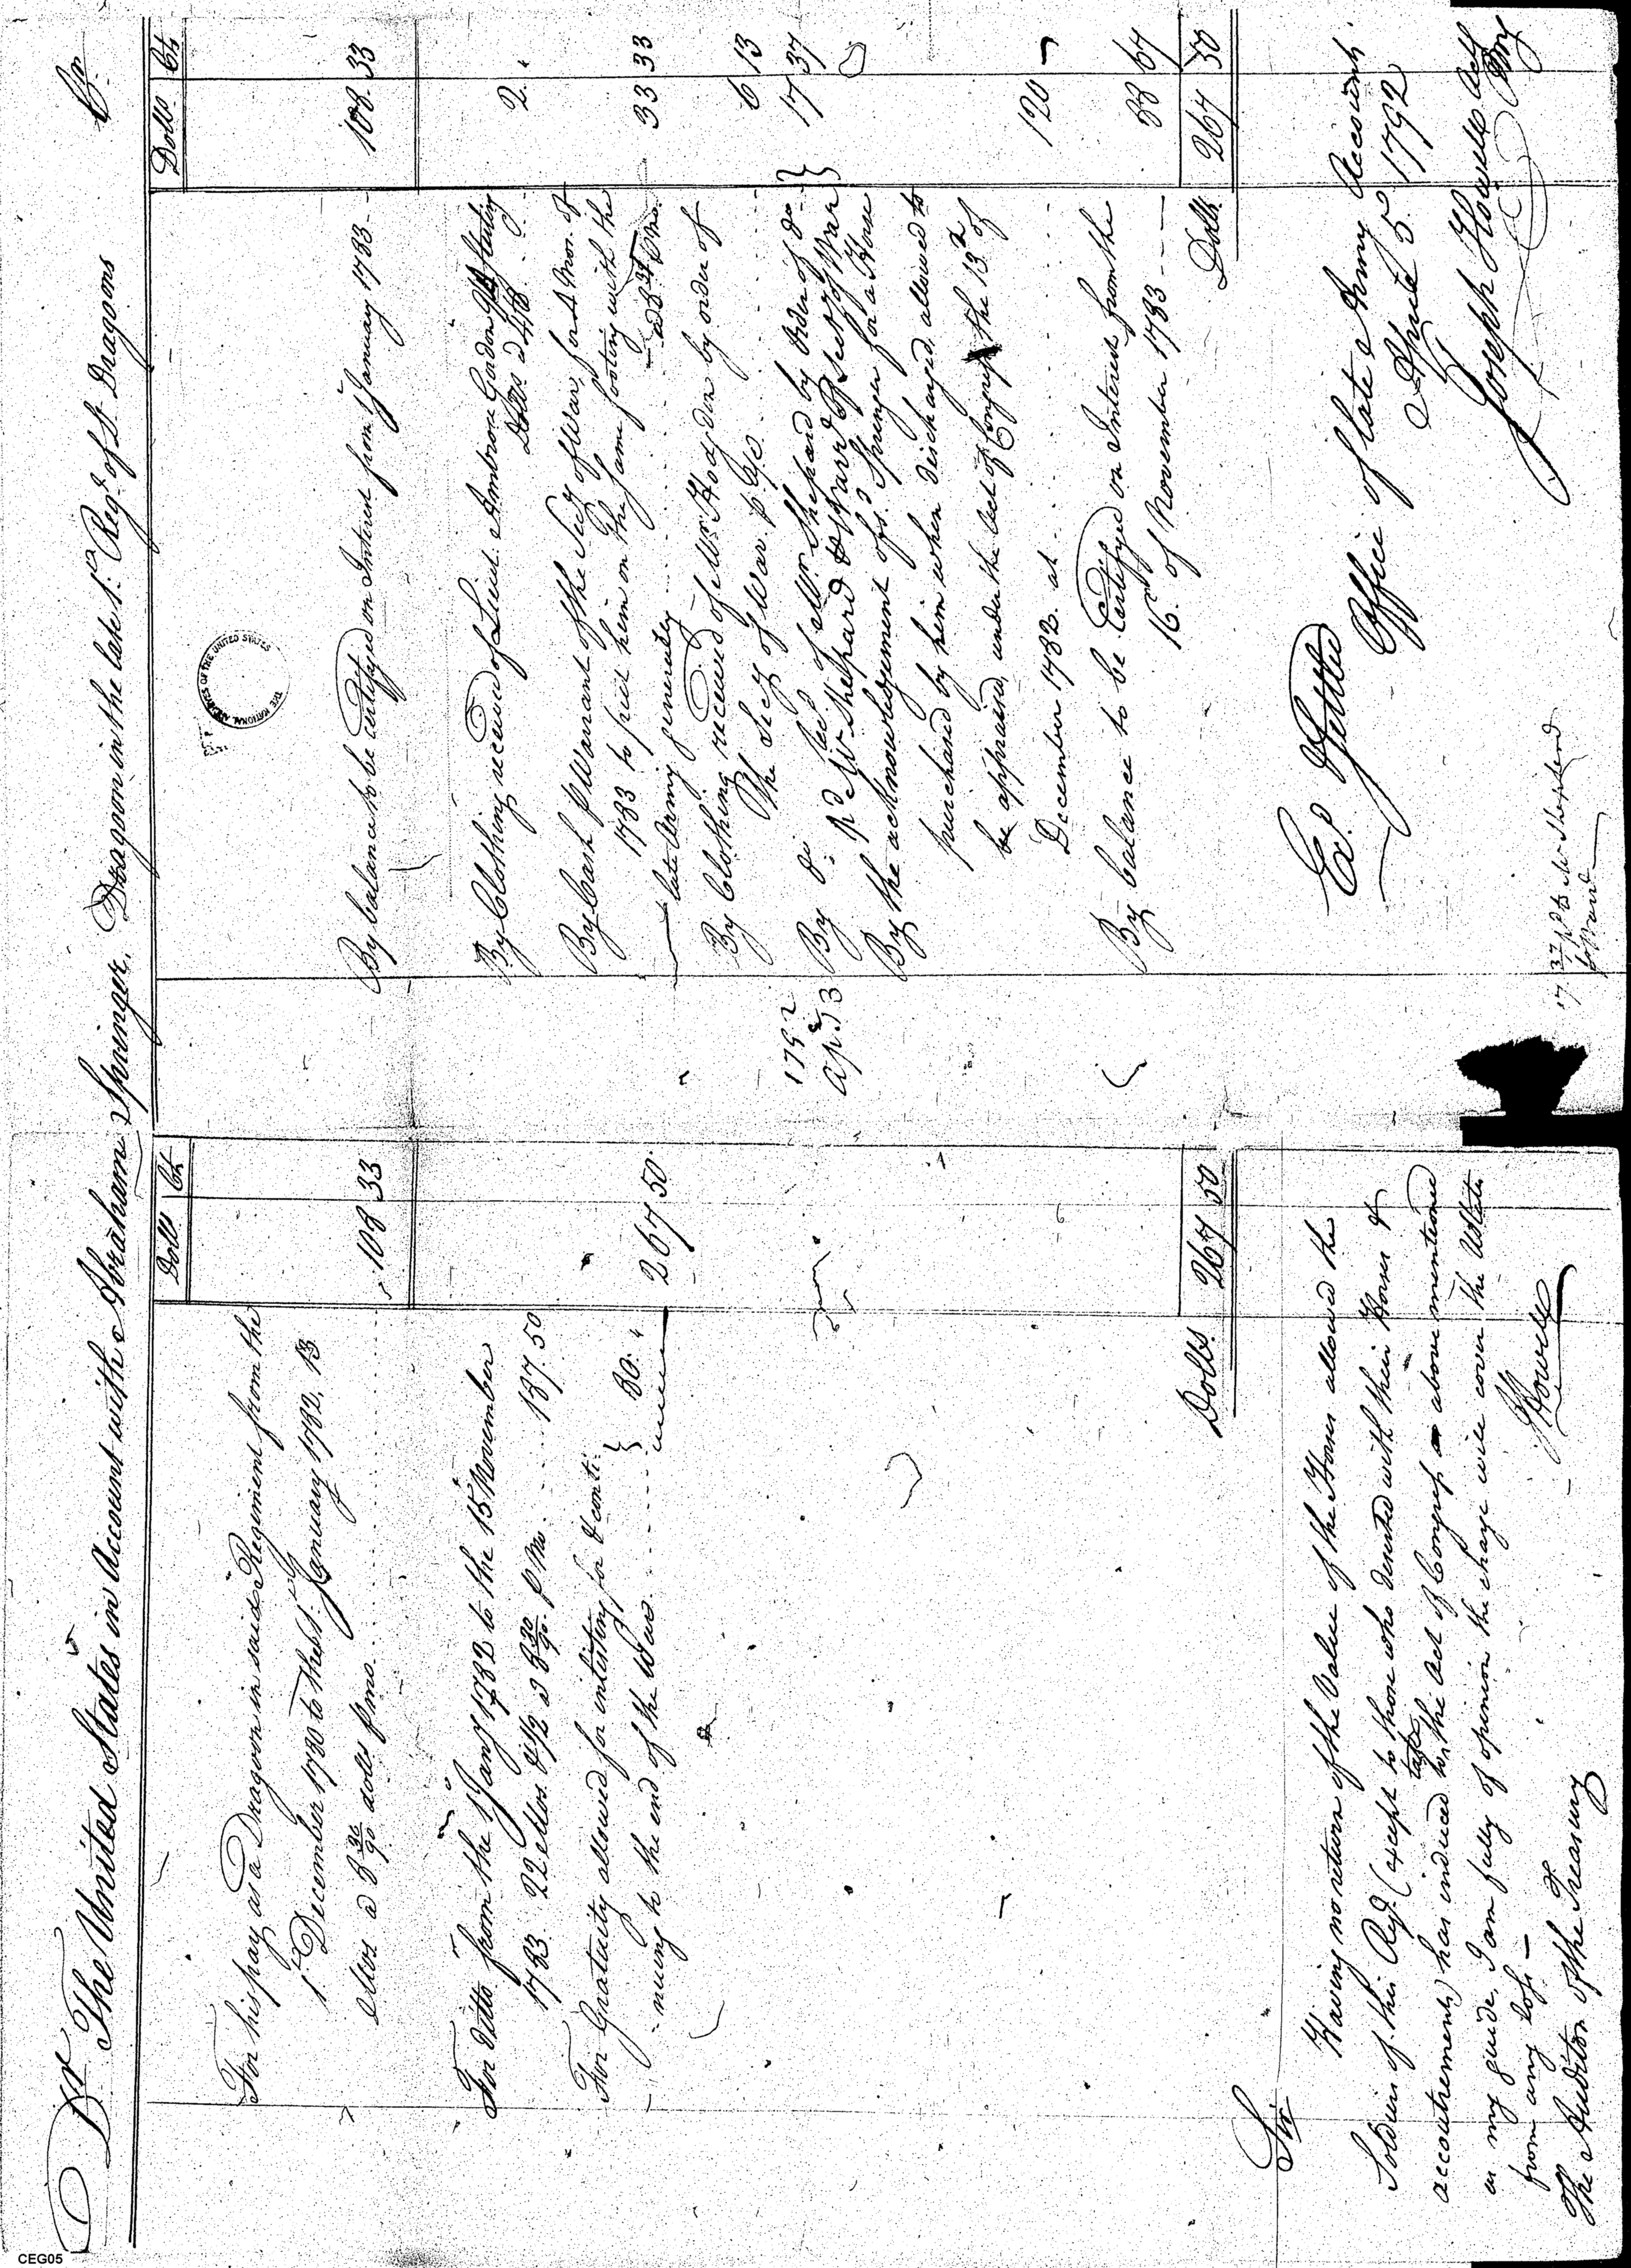 Dr The United States in Account with Abraham Springer, Dragoon in the late 1st Regt of Lt Dragoons Cr
Dolls Cts
For his pay as a Dragoon in said Regiment from the
1st December 1780 to the 1st January 1782, 13
Mos a 8 30/90 dolls p mo. 108 33
For ditto from the 1 Jany 1782 to the 15 November
1783. 22 Mos. & 1/2 a 8 30/90 p Mo. 187.50
For Gratuity allowed for inlisting for & conti- }
-nuing to the end of the War } 80. 267 50
Dolls. 267 50
Sir
Having no return of the Value of the Horses allowed the
Soldiers of this Regt (except to those who deserted with their Horses &
accoutrements) has induced to take the Act of Congress above mentioned
as my guide, I am fully of opinion the charge will cover the UStates
from any loss—
JHowell
The Auditor of the Treasury
Dolls Cts
By balance to be certifyed on Interest from 1 January 1783 108. 33
By Clothing received of Lieut. Ambrose Gordon
Dolls a 4/6 2.
By Cash p Warrant of the Secy of War, for 4 Mon. of
1783 to put him on the same footing with the
late Army generally 33 33
By Clothing received of Mr Hodgdon by order of
the Secy of War p 6 13
1792
Apl 3 By do recd of Mr Shepard by Order of do } 17 37
pd Mr Shephard Secy of War }
By the acknowledgement of sd Springer for a Horse
purchased by him when discharged, allowed to
be appraised, under the Act of Congress the 13th of
December 1782 at 120 -
By balance to be Certifyed on Interest from the
16 of November 1783 88 67
Dolls. 267 50
THE NATIONAL ARCHIVES OF THE UNITED STATES
Exd Settled
Office of late Army Accounts
April 5. 1792
Joseph Howell
17 37 pd to Mr Shepherd
CEG05